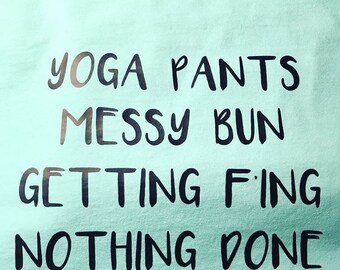 YOGA PANTS
MESSY BUN
GETTING F'ING
NOTHING DONE